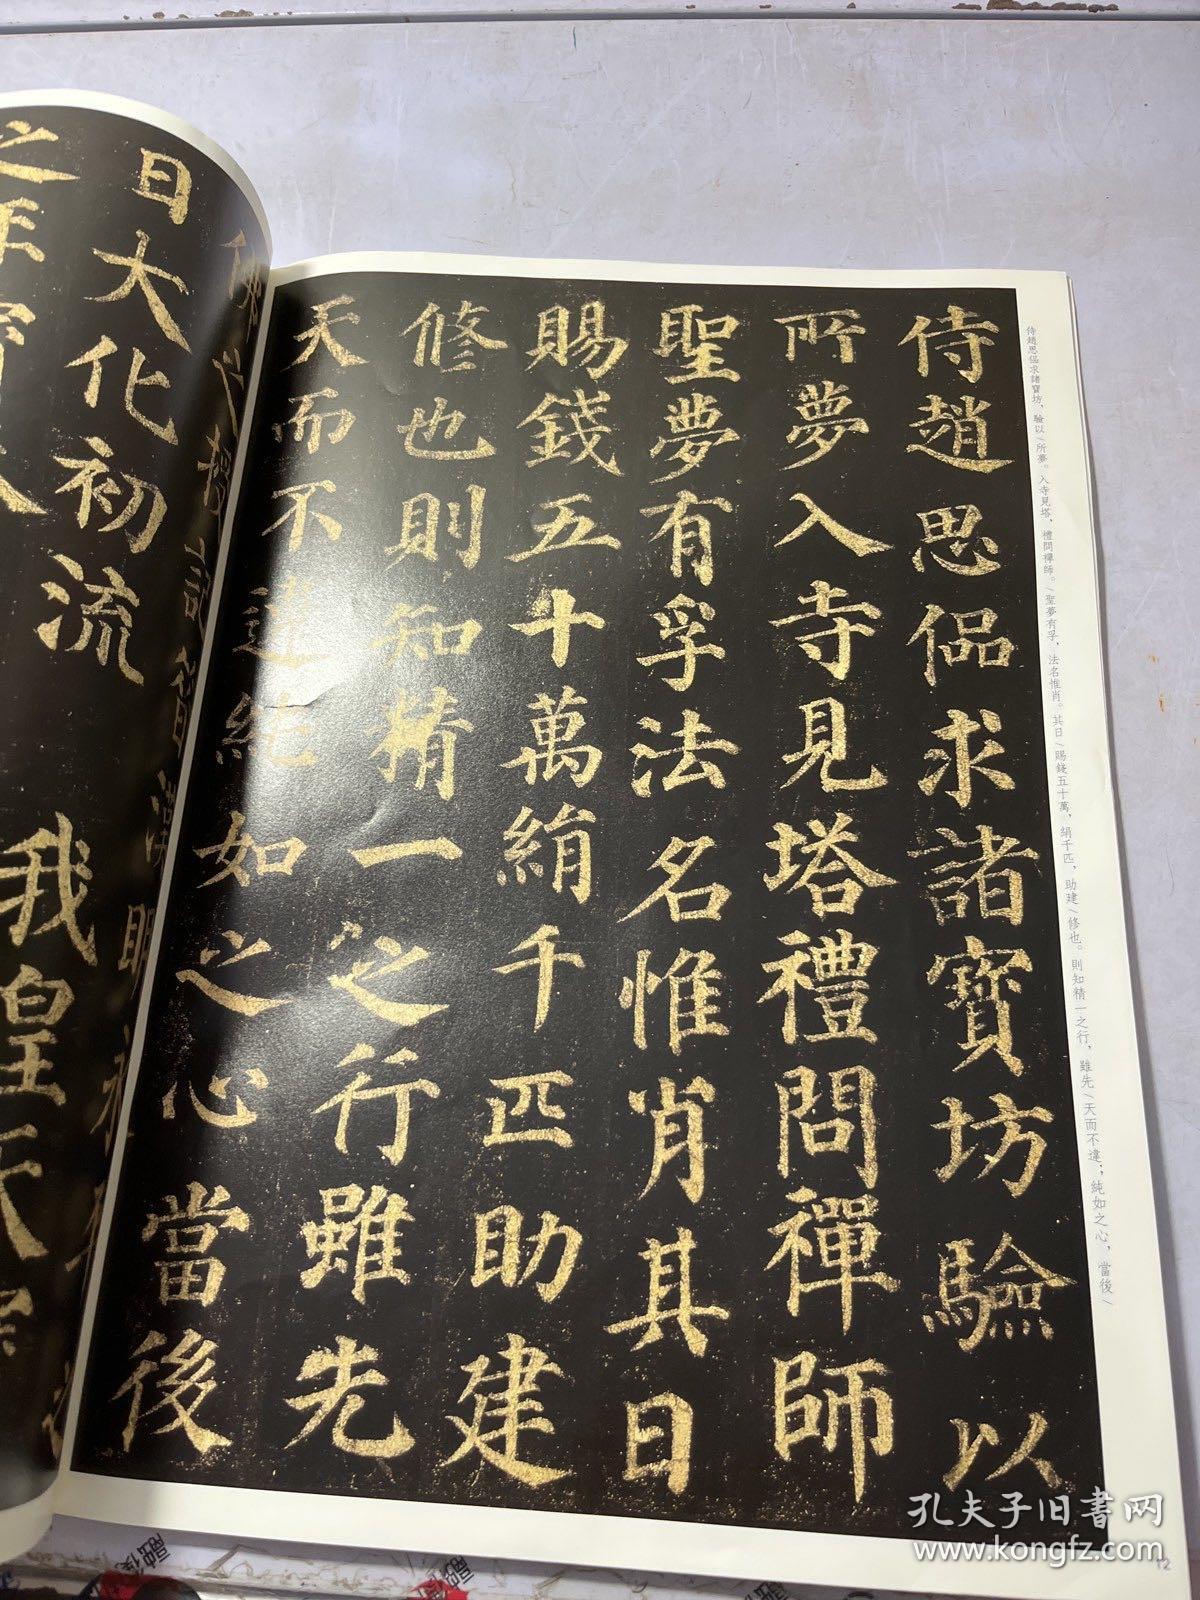 侍趙思偘求諸寶坊，驗以／所夢。入寺見塔，禮問禪師。／聖夢有孚，法名惟肖。其日／賜錢五十萬，絹千匹，助建／修也。則知精一之行，雖先／天而不違；純如之心，當後／
侍趙思偘求諸寶坊驗以
所夢入寺見塔禮問禪師
聖夢有孚法名惟肖其日
賜錢五十萬絹千匹助建
修也則知精一之行雖先
天而不違純如之心當後
12
日大化初流
我皇天
孔夫子旧書网
www.kongfz.com